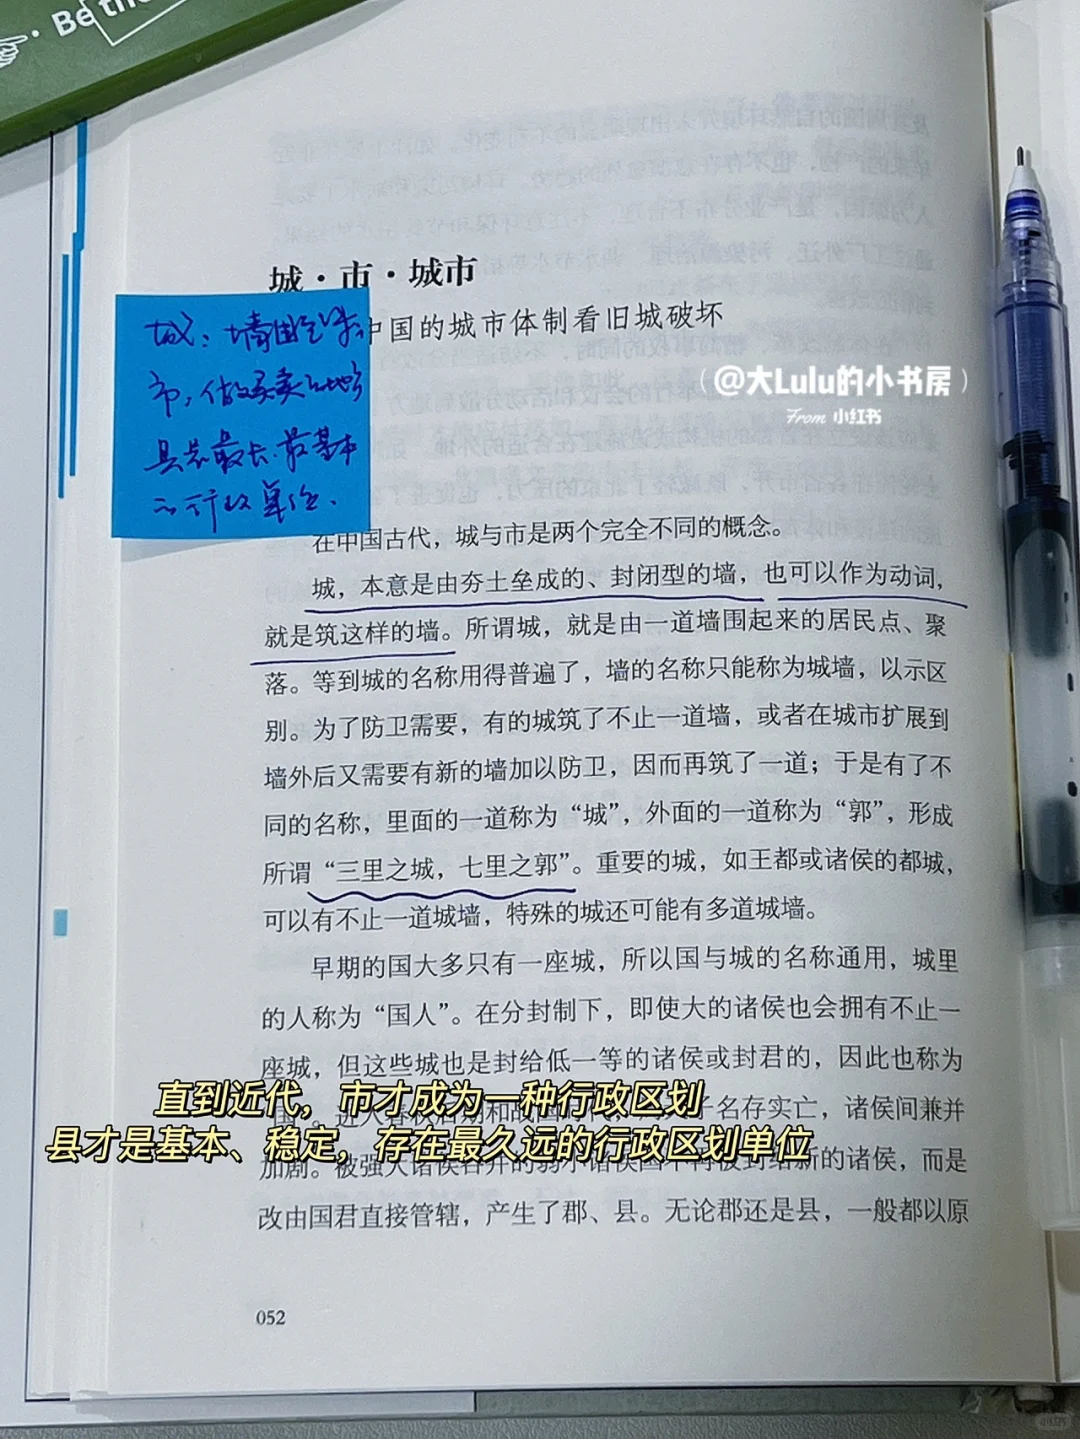 Be the
城·市·城市
中国的城市体制看旧城破坏
城：墙围起来
市：做买卖的地方
县是最长、最基本
的行政单位.
（@大Lulu的小书房）
From 小红书
在中国古代，城与市是两个完全不同的概念。
城，本意是由夯土垒成的、封闭型的墙，也可以作为动词，
就是筑这样的墙。所谓城，就是由一道墙围起来的居民点、聚
落。等到城的名称用得普遍了，墙的名称只能称为城墙，以示区
别。为了防卫需要，有的城筑了不止一道墙，或者在城市扩展到
墙外后又需要有新的墙加以防卫，因而再筑了一道；于是有了不
同的名称，里面的一道称为“城”，外面的一道称为“郭”，形成
所谓“三里之城，七里之郭”。重要的城，如王都或诸侯的都城，
可以有不止一道城墙，特殊的城还可能有多道城墙。
早期的国大多只有一座城，所以国与城的名称通用，城里
的人称为“国人”。在分封制下，即使大的诸侯也会拥有不止一
座城，但这些城也是封给低一等的诸侯或封君的，因此也称为
直到近代，市才成为一种行政区划
进入春秋后期和战国时代，子名存实亡，诸侯间兼并
县才是基本、稳定，存在最久远的行政区划单位
加剧。被强大诸侯吞并的弱小诸侯国不再被封给新的诸侯，而是
改由国君直接管辖，产生了郡、县。无论郡还是县，一般都以原
052
小红书